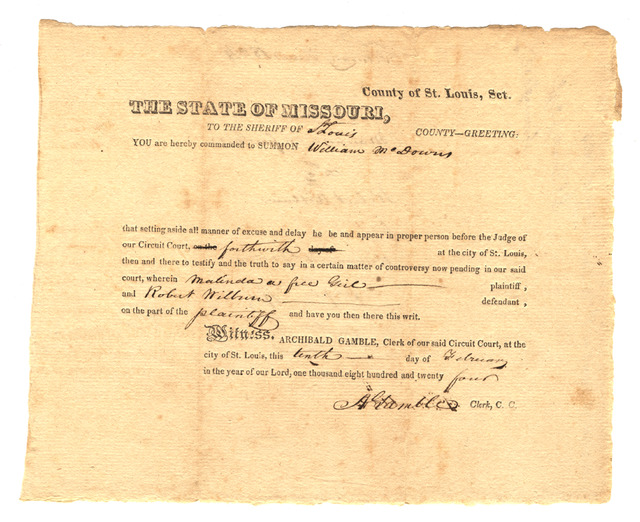 County of St. Louis, Sct.
THE STATE OF MISSOURI,
TO THE SHERIFF OF St Louis COUNTY—GREETING:
YOU are hereby commanded to SUMMON William McDowns
that setting aside all manner of excuse and delay he be and appear in proper person before the Judge of
our Circuit Court, on the forthwith day of at the city of St. Louis,
then and there to testify and the truth to say in a certain matter of controversy now pending in our said
court, wherein Malinda a free Girl plaintiff,
and Robert Wilburn defendant,
on the part of the plaintiff and have you then there this writ.
Witness, ARCHIBALD GAMBLE, Clerk of our said Circuit Court, at the
city of St. Louis, this tenth day of February
in the year of our Lord, one thousand eight hundred and twenty four
A Gamble Clerk, C. C.